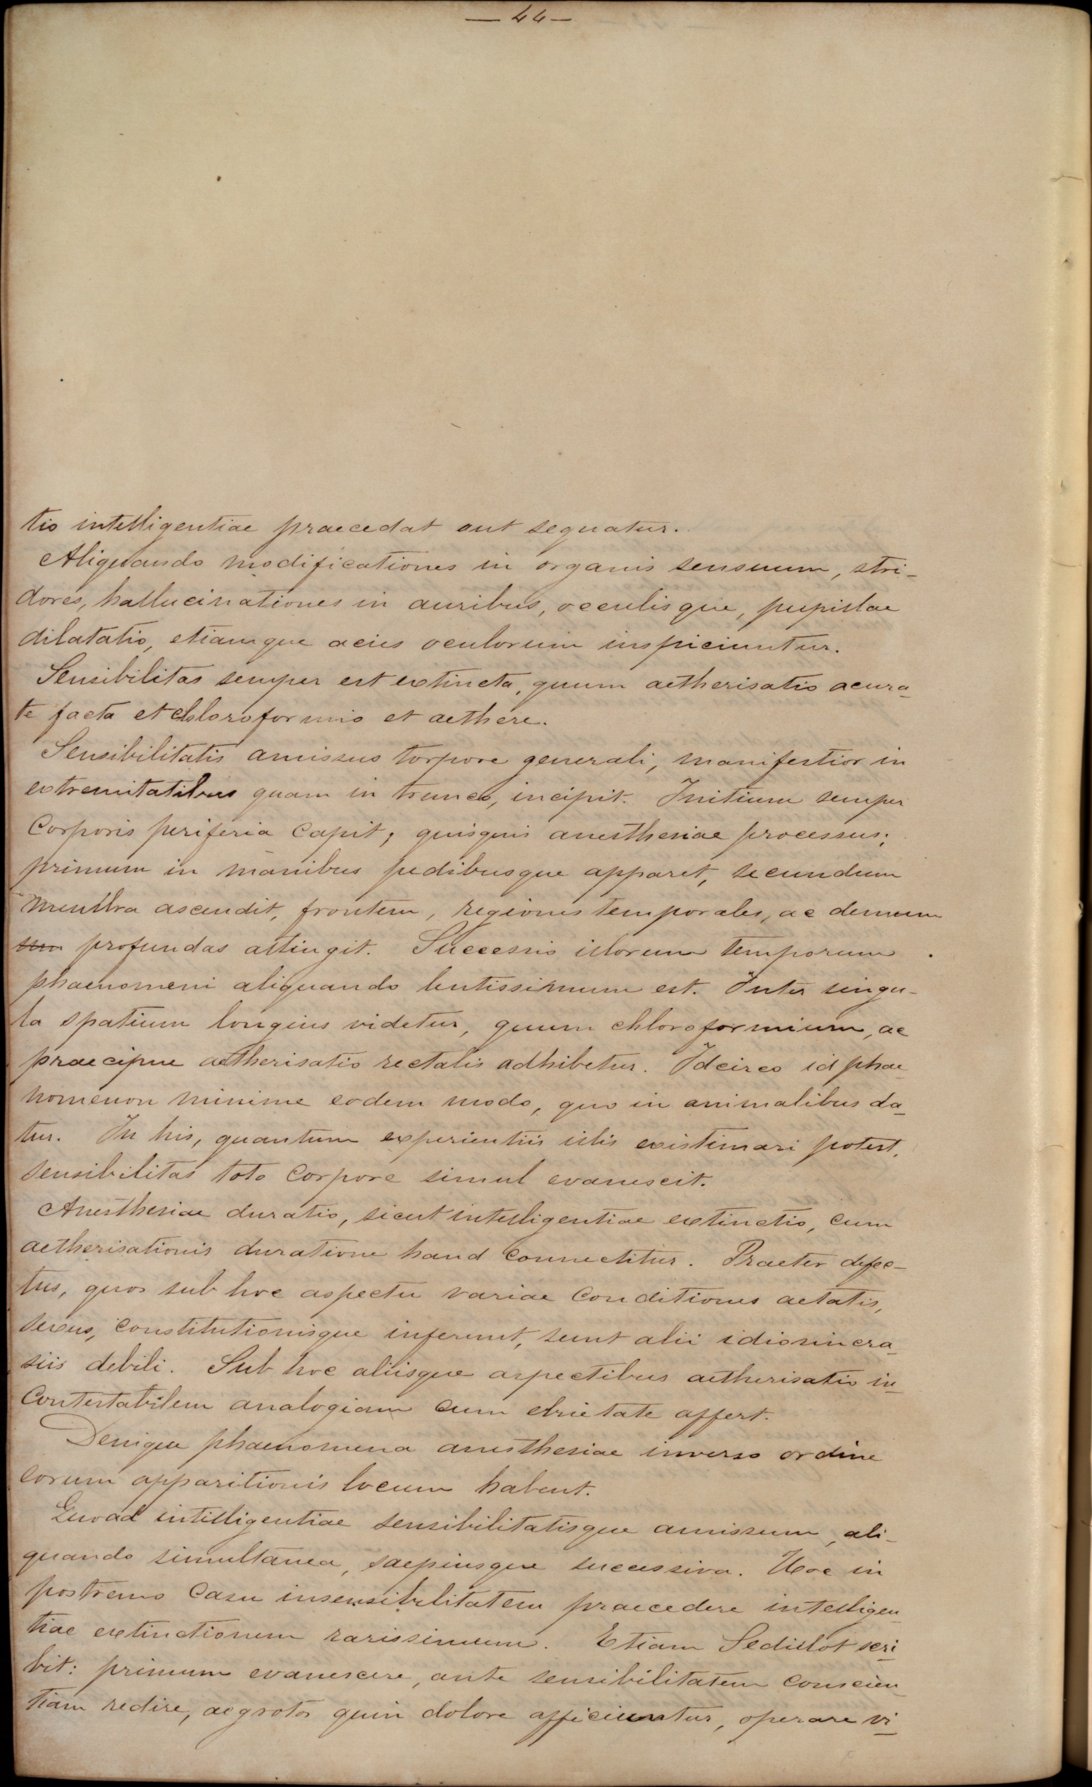 — 44 —
tio intelligentiae praecedat aut sequatur.
Aliquando modificationes in organis sensuum, stri-
dores, hallucinationes in auribus, occulisque, pupillae
dilatatio, etiamque acies oculorum inspiciuntur.
Sensibilitas semper est extincta, quum aetherisatio acura-
te facta et chloroformio et aethere.
Sensibilitatis amissus torpore generali, manifestior in
extremitatibus quam in trunco, incipit. Initium semper
Corporis periferia capit; quisquis anesthesiae processus;
primum in manibus pedibusque apparet, secundum
membra ascendit, frontem, regiones temporales, ac demum
profundas attingit. Successio illorum temporum
phaenomeni aliquando lentissimum est. Inter singu-
la spatium longius videtur, quum chloroformium, ac
praecipue aetherisatio rectalis adhibetur. Idcirco id phae-
nomenon minime eodem modo, quo in animalibus da-
tur. In his, quantum experientiis istis existimari potest,
sensibilitas toto corpore simul evanescit.
Anesthesiae duratio, sicut intelligentiae extinctio, cum
aetherisationis duratione haud connectitur. Praeter
tus, quos sub hoc aspectu variae conditiones aetatis,
sexus, constitutionisque inferunt, sunt alii idiosincra-
siis debili. Sub hoc aliisque aspectibus aetherisatio in-
contestabilem analogiam cum ebrietate affert.
Denique phaenomena anesthesiae inverso ordine
eorum apparitionis locum habent.
Quoad intelligentiae sensibilitatisque amissum, ali-
quando simultanea, saepiusque successiva. Hoc in
postremo casu insensibilitatem praecedere intelligen
tiae extinctionem rarissimum. Etiam Sedillot scri-
bit: primum evanescere, ante sensibilitatem conscien
tiam redire, aegrotos quin dolore afficiuntur, operare vi-